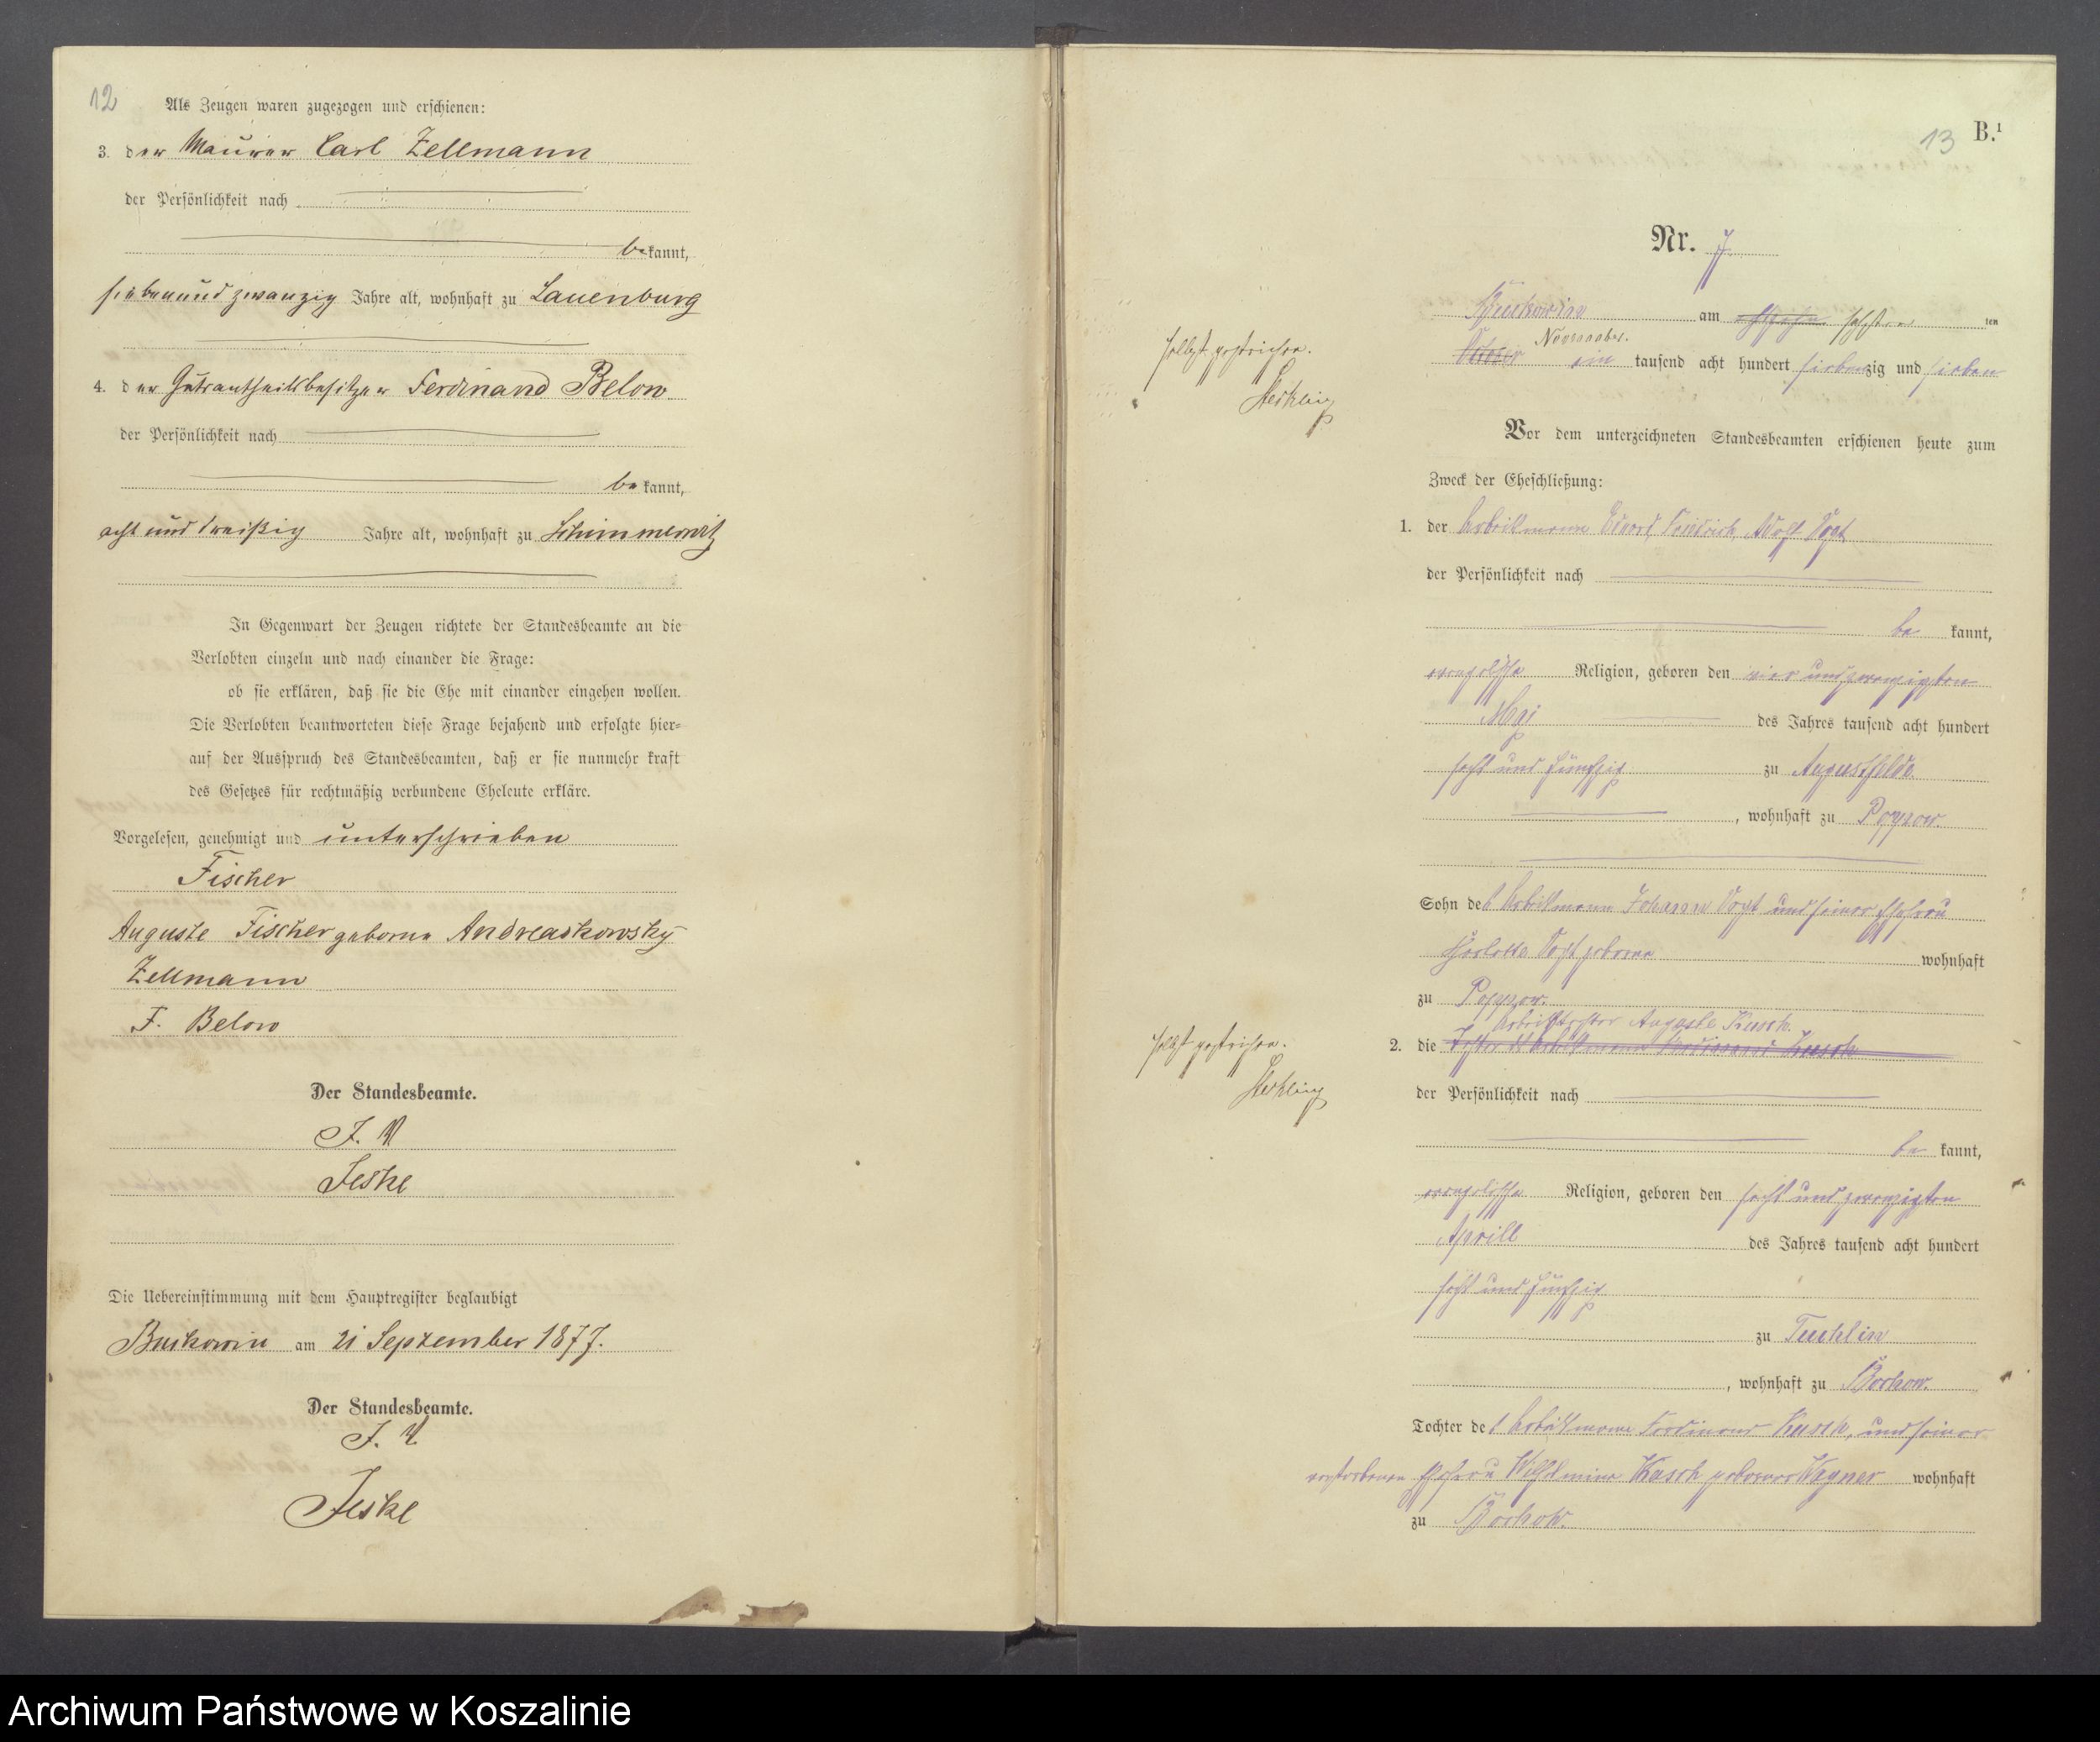 12
Als Zeugen waren zugezogen und erschienen:
3. der Maurer Carl Zellmann
der Persönlichkeit nach
bekannt,
siebenundzwanzig Jahre alt, wohnhaft zu Lauenburg
4. der Gutsantheilsbesitzer Ferdinand Below
der Persönlichkeit nach
bekannt,
acht und dreißig Jahre alt, wohnhaft zu Schimmerwitz
In Gegenwart der Zeugen richtete der Standesbeamte an die
Verlobten einzeln und nach einander die Frage:
ob sie erklären, daß sie die Ehe mit einander eingehen wollen.
Die Verlobten beantworteten diese Frage bejahend und erfolgte hier-
auf der Ausspruch des Standesbeamten, daß er sie nunmehr kraft
des Gesetzes für rechtmäßig verbundene Eheleute erkläre.
Vorgelesen, genehmigt und unterschrieben
Fischer
Auguste Fischer geborne Andreaskowsky
Zellmann
F. Below
Der Standesbeamte.
J. V.
Jeske
Die Uebereinstimmung mit dem Hauptregister beglaubigt
Buckowin am 21 September 1877.
Der Standesbeamte.
J. V.
Jeske
13 B.¹
Nr. 7
Buckowin am achtzehn sechsten ten
November.
October ein tausend acht hundert siebenzig und sieben
selbst gestrichen.
Vor dem unterzeichneten Standesbeamten erschienen heute zum
Zweck der Eheschließung:
1. der Arbeitsmann Eduard, Friedrich, Adolf Vogt
der Persönlichkeit nach
bekannt,
evangelischer Religion, geboren den vier und zwanzigsten
Mai des Jahres tausend acht hundert
sechs und fünfzig zu Augustfelde
, wohnhaft zu Poppow.
Sohn des Arbeitsmann Johann Vogt und seiner Ehefrau
Charlotte Vogt geborene wohnhaft
zu Poppow.
Arbeitstochter Auguste Kusch.
2. die Tochter des Arbeitsmann Ferdinand Kusch
selbst gestrichen.
der Persönlichkeit nach
bekannt,
evangelischer Religion, geboren den sechs und zwanzigsten
Aprill des Jahres tausend acht hundert
sechs und fünfzig
zu Tuchlin
, wohnhaft zu Bochow.
Tochter des Arbeitsmann Ferdinand Kusch, und seiner
verstorbenen Ehefrau Wilhelmine Kusch geborene Wagner wohnhaft
zu Bochow.
Archiwum Państwowe w Koszalinie